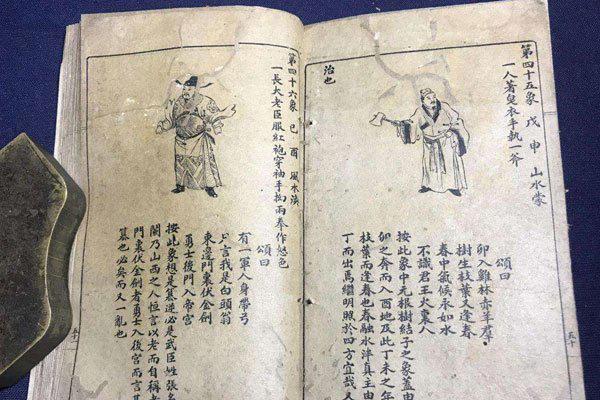 第四十五象 戊申 山水蒙
一人著皂衣手執一斧
頌曰
卯入雞林赤羊羣
樹生枝葉又逢春
春中氣候永如水
不識君王火東人
按此象中无根樹結子之象蓋由
卯之奔而入酉地及此丁未之年
枝葉而逢春也春融水泮真主由
丁而出焉繼明照於四方宜哉又
治也
五十
第四十六象 己酉 風水渙
一長大老臣服紅袍穿袖手拘兩拳作怒色
頌曰
有一軍人身帶弓
只言我是白頭翁
東邊門裏伏金劍
勇士後門入帝宮
按此象想是纂逆必是武臣姓張名
闕乃山西之人恆言以老而自稱者
門裏伏金劍者勇士入後宮而言其
纂也必矣而又一亂也